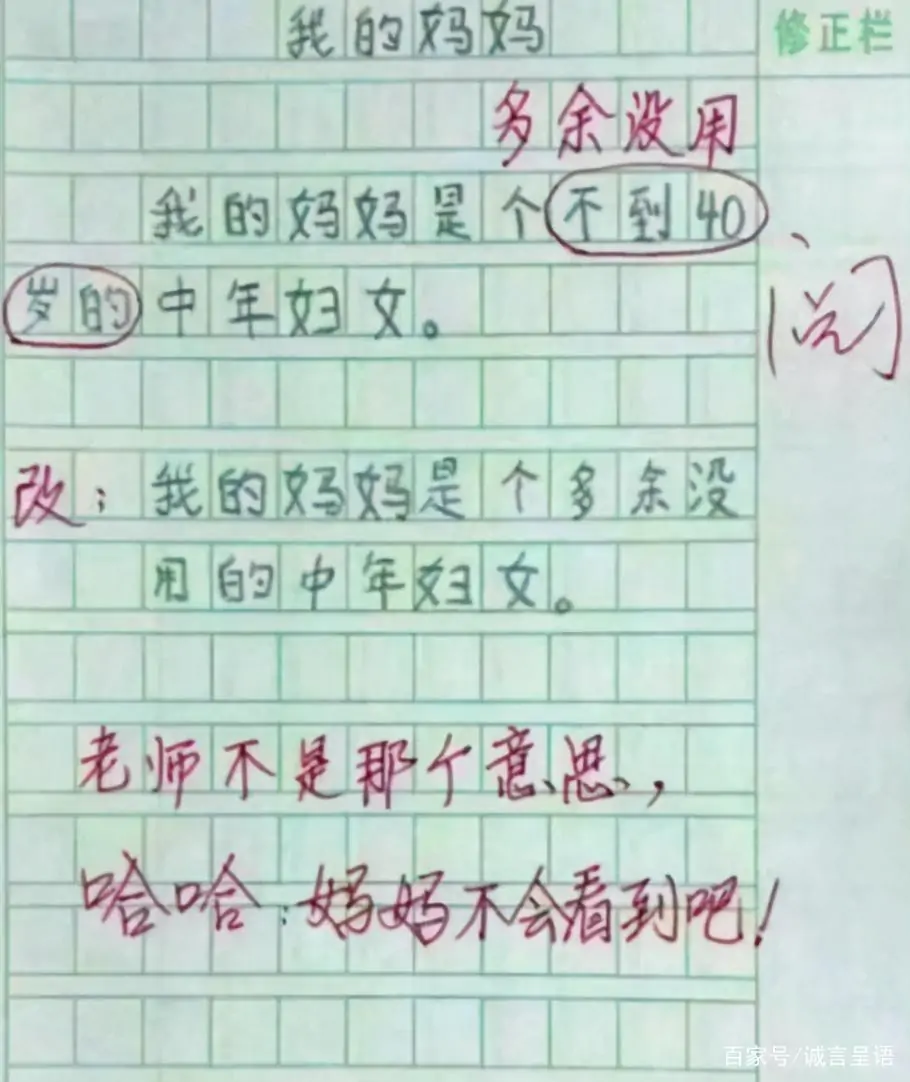 我的妈妈
修正栏
多余没用
我的妈妈是个不到40
岁的中年妇女。
阅
改：我的妈妈是个多余没
用的中年妇女。
老师不是那个意思，
哈哈：妈妈不会看到吧！
百家号/诚言呈语